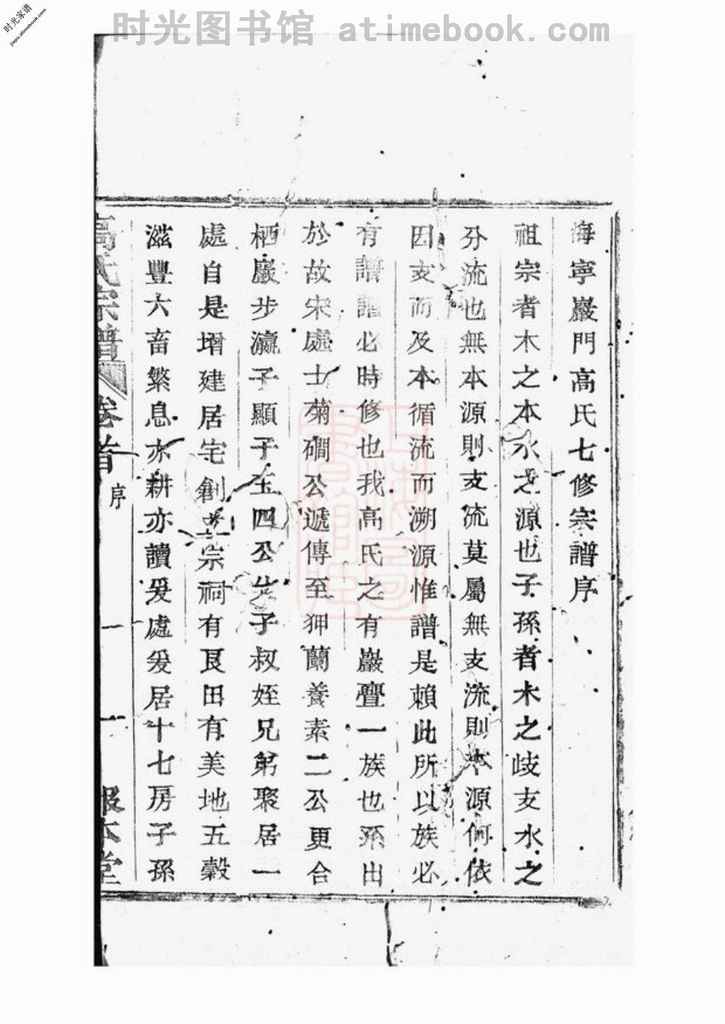 时光图书馆 atimebook.com
时光家谱
海寧巖門高氏七修宗譜序
祖宗者木之本水之源也子孫者木之歧支水之
分流也無本源則支流莫屬無支流則本源何依
因支而及本循流而溯源惟譜是賴此所以族必
有譜譜必時修也我高氏之有巖亹一族也系出
於故宋處士菊磵公遞傳至狎蘭養素二公更合
栖巖步瀛子顯子玉四公父子叔姪兄弟聚居一
處自是增建居宅創立宗祠有良田有美地五穀
滋豐六畜繁息亦耕亦讀爰處爰居十七房子孫
高氏宗譜
卷首
序
一
報本堂